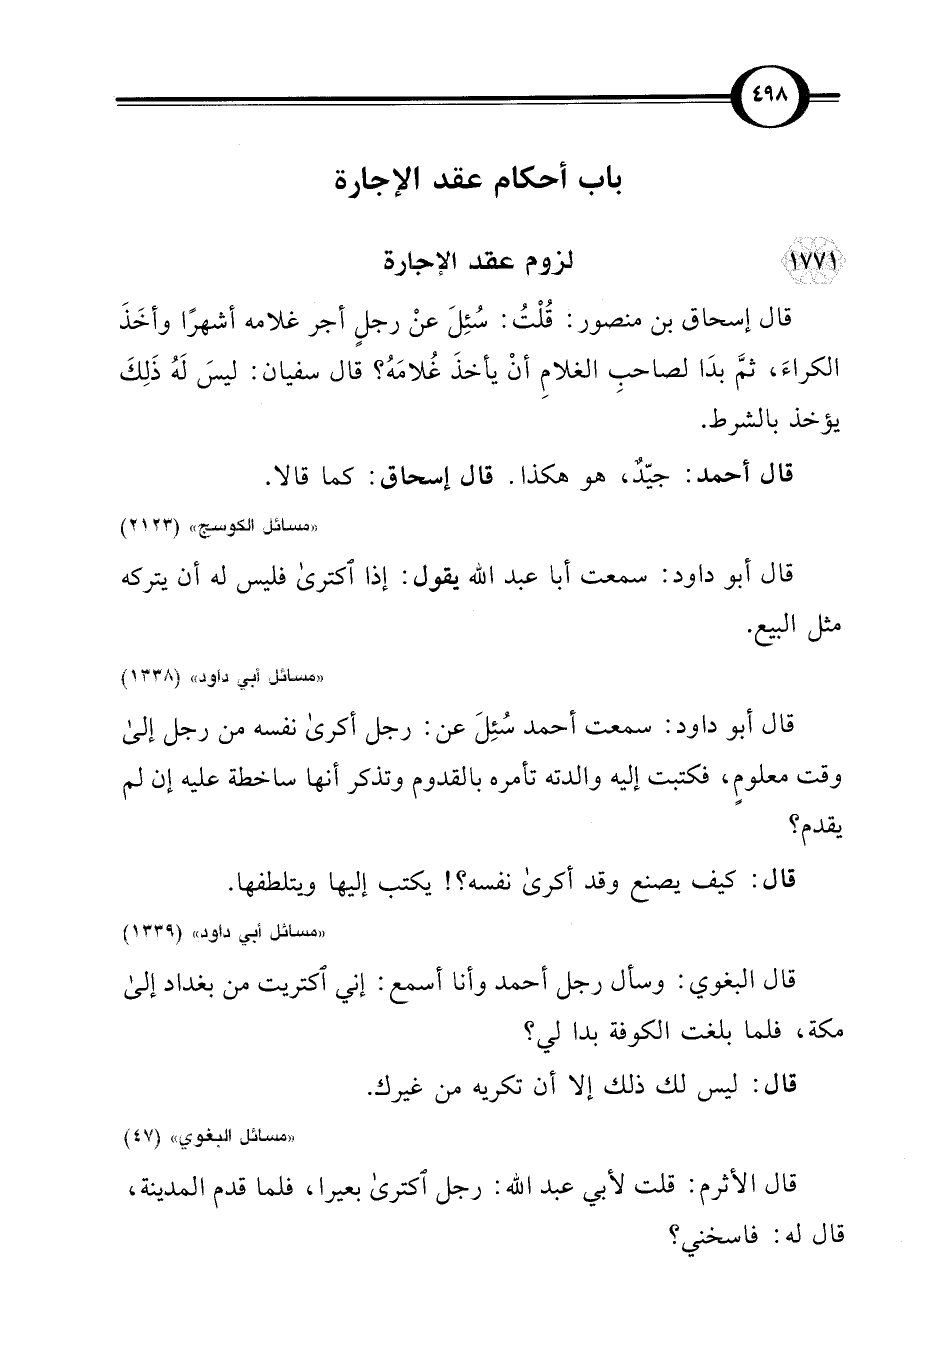 ٤٩٨
باب أحكام عقد الإجارة
١٧٧١ لزوم عقد الإجارة
قال إسحاق بن منصور: قُلْتُ: سُئِلَ عنْ رجلٍ أجر غلامه أشهرًا وأخَذَ
الكراءَ، ثمَّ بدَا لصاحبِ الغلامِ أنْ يأخذَ غُلامَهُ؟ قال سفيان: ليسَ لَهُ ذَلِكَ
يؤخذ بالشرط.
قال أحمد: جيّدٌ، هو هكذا. قال إسحاق: كما قالا.
«مسائل الكوسج» (٢١٢٣)
قال أبو داود: سمعت أبا عبد الله يقول: إذا ٱكترىٰ فليس له أن يتركه
مثل البيع.
«مسائل أبي داود» (١٣٣٨)
قال أبو داود: سمعت أحمد سُئِلَ عن: رجل أكرىٰ نفسه من رجل إلىٰ
وقت معلومٍ، فكتبت إليه والدته تأمره بالقدوم وتذكر أنها ساخطة عليه إن لم
يقدم؟
قال: كيف يصنع وقد أكرىٰ نفسه؟! يكتب إليها ويتلطفها.
«مسائل أبي داود» (١٣٣٩)
قال البغوي: وسأل رجل أحمد وأنا أسمع: إني ٱكتريت من بغداد إلىٰ
مكة، فلما بلغت الكوفة بدا لي؟
قال: ليس لك ذلك إلا أن تكريه من غيرك.
«مسائل البغوي» (٤٧)
قال الأثرم: قلت لأبي عبد الله: رجل ٱكترىٰ بعيرا، فلما قدم المدينة،
قال له: فاسخني؟